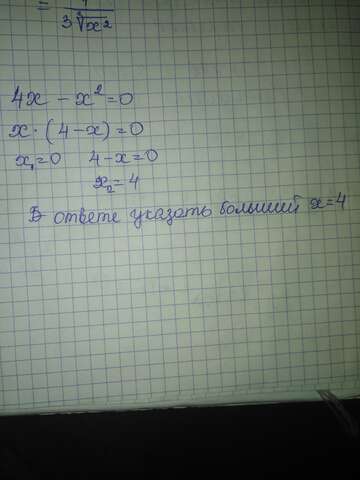 = 1/(3∛x²)
4x − x² = 0
x · (4 − x) = 0
x₁ = 0 4 − x = 0
x₂ = 4
В ответе указать больший x = 4